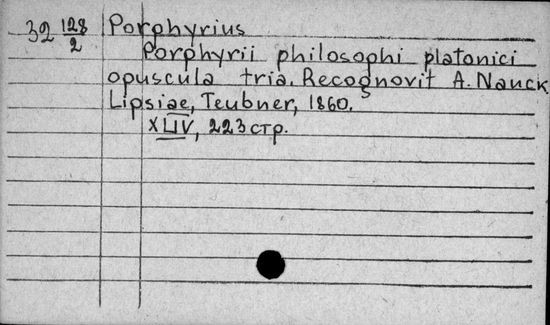 32 128/2 Porphyrius
Porphyrii philosophi platonici
opuscula tria. Recognovit A. Nauck
Lipsiae, Teubner, 1860.
XLIV, 223 стр.